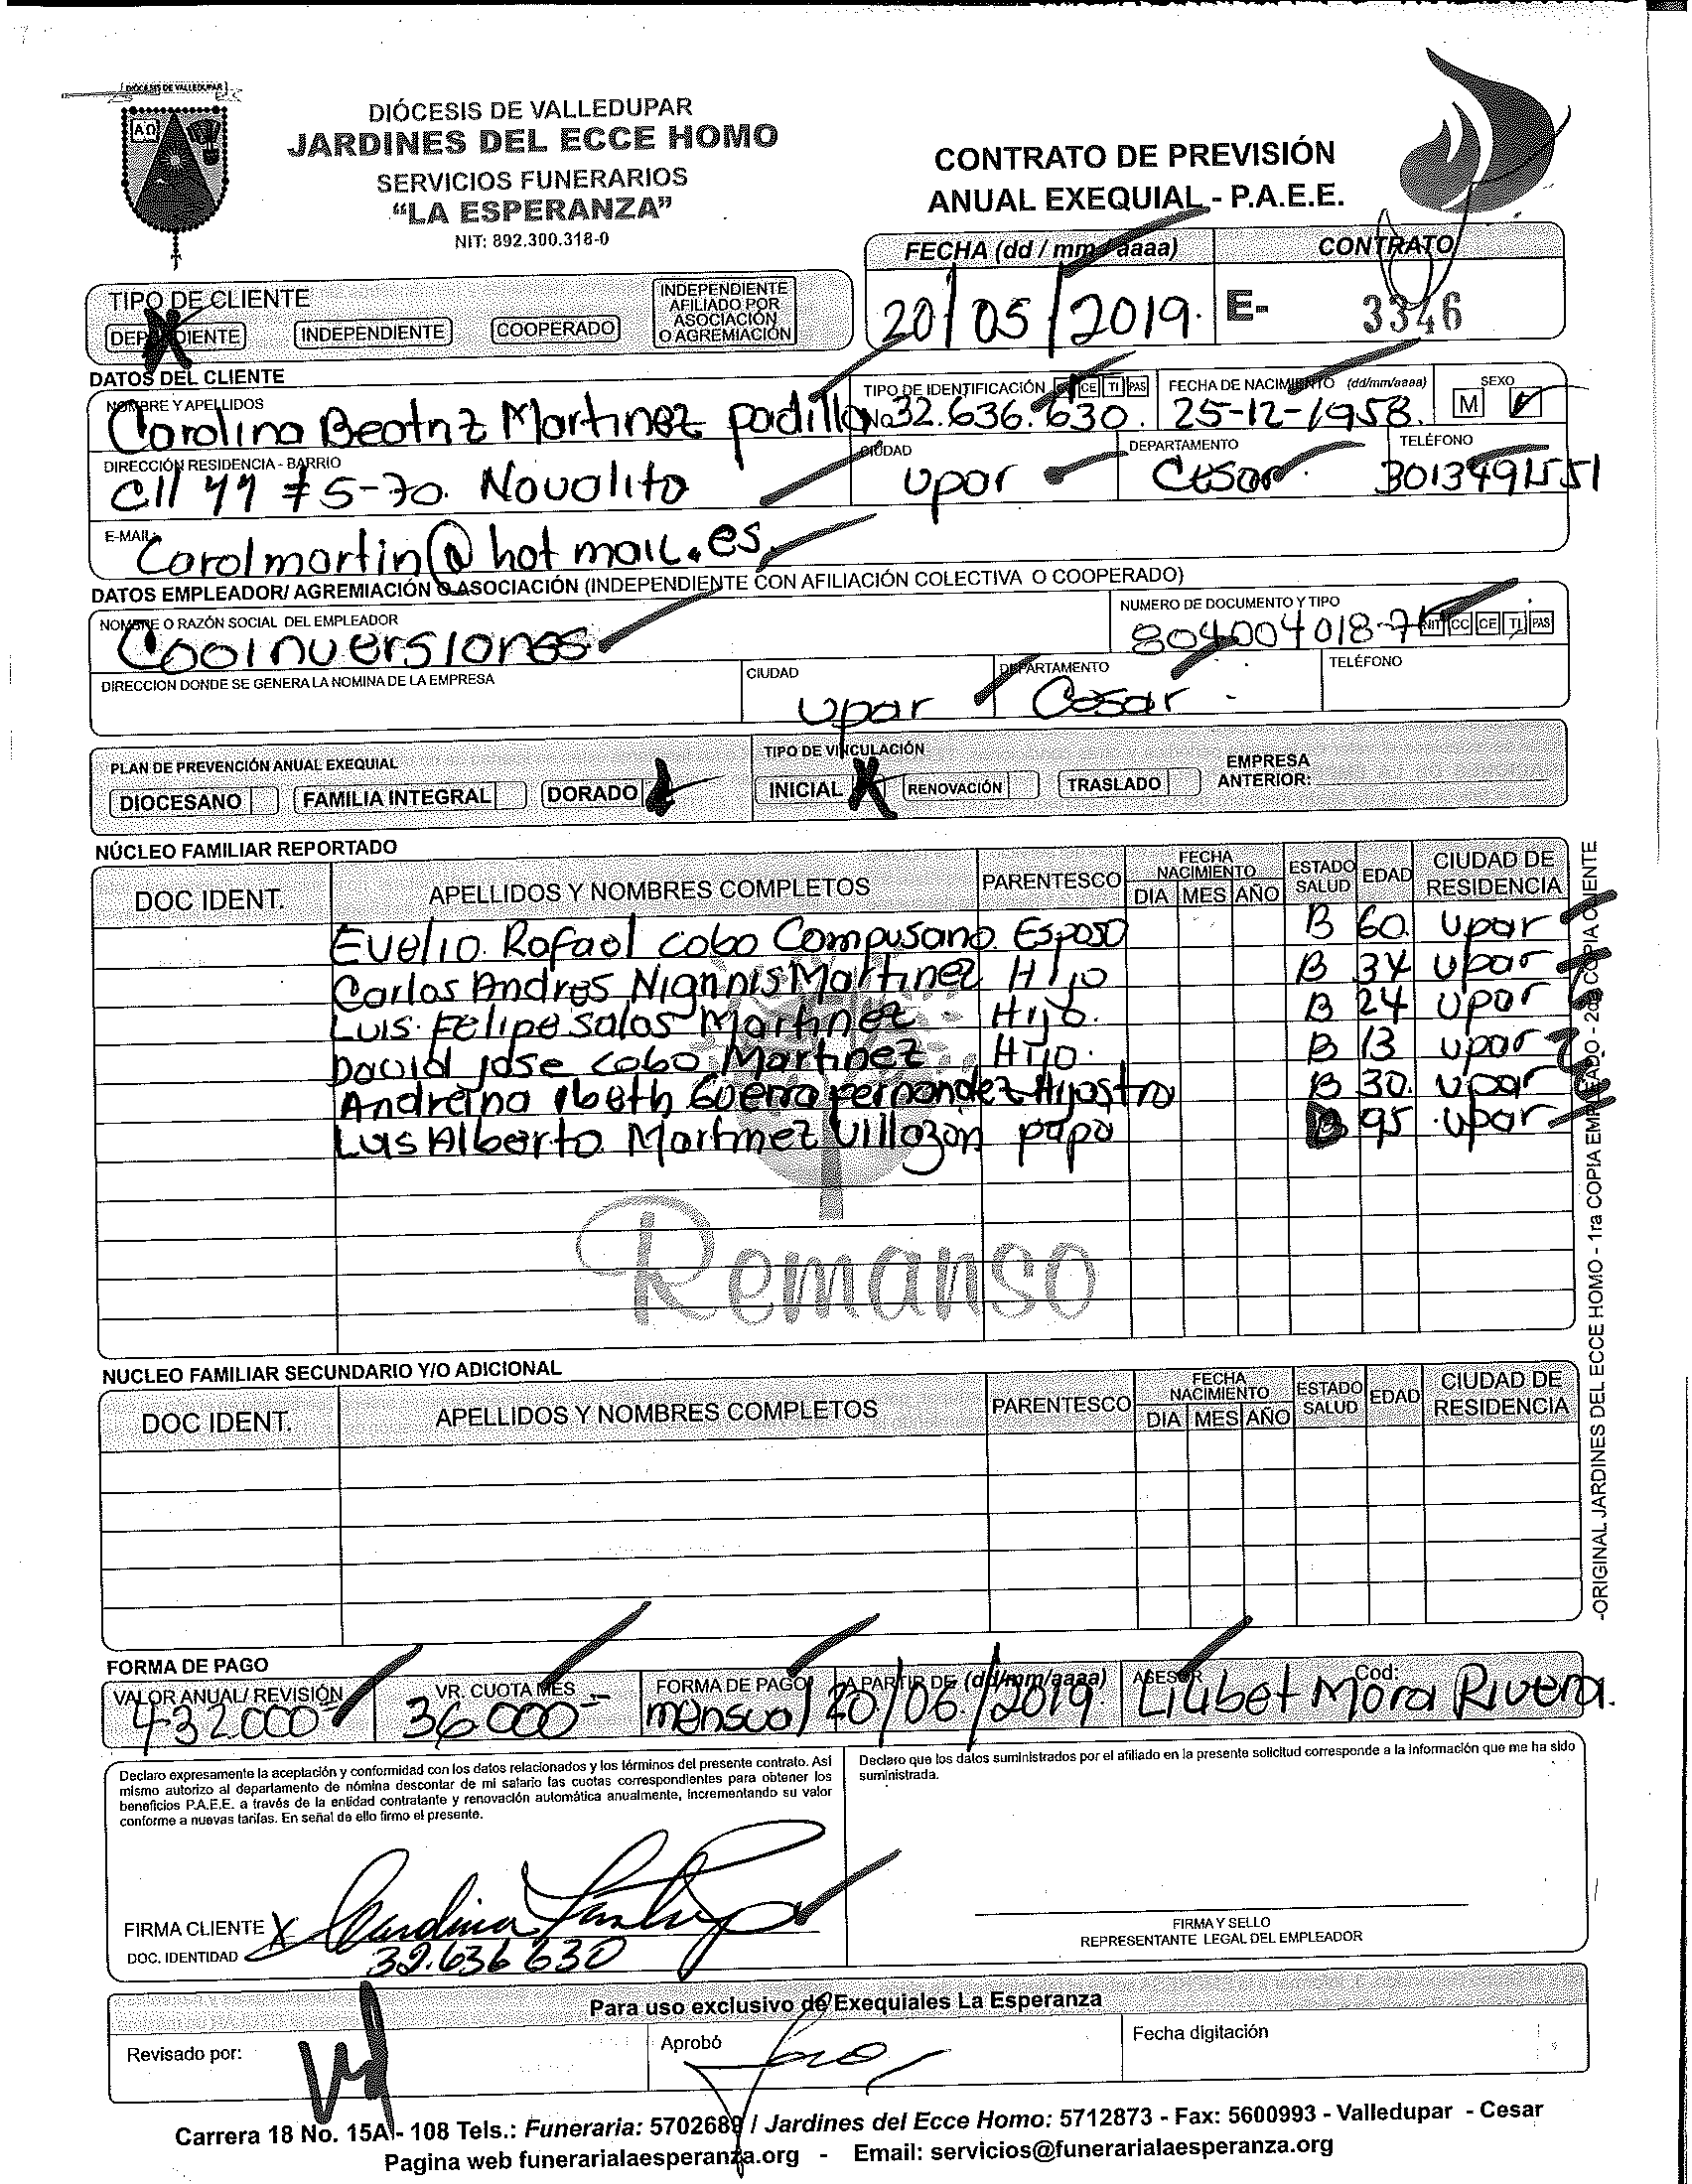 DIÓCESIS DE VALLEDUPAR
ΑΩ
DIÓCESIS DE VALLEDUPAR
JARDINES DEL ECCE HOMO
SERVICIOS FUNERARIOS
“LA ESPERANZA”
NIT: 892.300.318-0
CONTRATO DE PREVISIÓN
ANUAL EXEQUIAL - P.A.E.E.
FECHA (dd / mm / aaaa) CONTRATO
20/05/2019. E- 3346
TIPO DE CLIENTE
DEPENDIENTE X INDEPENDIENTE COOPERADO INDEPENDIENTE AFILIADO POR ASOCIACIÓN O AGREMIACIÓN
DATOS DEL CLIENTE
NOMBRE Y APELLIDOS TIPO DE IDENTIFICACIÓN CE TI PAS FECHA DE NACIMIENTO (dd/mm/aaaa) SEXO
Carolina Beatriz Martinez padilla No 32.636.630. 25-12-1958. M
DIRECCIÓN RESIDENCIA - BARRIO CIUDAD DEPARTAMENTO TELÉFONO
Cll #5-70. Novalito Upar Cesar 3013491551
E-MAIL:
Carolmartin@hotmail.es
DATOS EMPLEADOR/ AGREMIACIÓN O ASOCIACIÓN (INDEPENDIENTE CON AFILIACIÓN COLECTIVA O COOPERADO)
NOMBRE O RAZÓN SOCIAL DEL EMPLEADOR NUMERO DE DOCUMENTO Y TIPO
Cooinversiones 804004018-7 NIT CC CE TI PAS
DIRECCION DONDE SE GENERA LA NOMINA DE LA EMPRESA CIUDAD DEPARTAMENTO TELÉFONO
Upar Cesar
PLAN DE PREVENCIÓN ANUAL EXEQUIAL TIPO DE VINCULACIÓN
DIOCESANO FAMILIA INTEGRAL DORADO INICIAL X RENOVACIÓN TRASLADO EMPRESA ANTERIOR:
NÚCLEO FAMILIAR REPORTADO
DOC IDENT. APELLIDOS Y NOMBRES COMPLETOS PARENTESCO FECHA NACIMIENTO DIA MES AÑO ESTADO SALUD EDAD CIUDAD DE RESIDENCIA
Evelio Rafael cobo Campusano Esposo B 60. Upar
Carlos Andres Martinez Hijo B 34 Upar
Luis Felipe Salas Martinez Hijo. B 24 Upar
David jose cobo Martinez Hijo. B 13 Upar
Andreina Ibeth Guerra Fernandez Hijastra B 30. Upar
Luis Alberto Martinez Villazon papa B 95 Upar
Remanso
NUCLEO FAMILIAR SECUNDARIO Y/O ADICIONAL
DOC IDENT. APELLIDOS Y NOMBRES COMPLETOS PARENTESCO FECHA NACIMIENTO DIA MES AÑO ESTADO SALUD EDAD CIUDAD DE RESIDENCIA
-ORIGINAL JARDINES DEL ECCE HOMO - 1ra COPIA EMPLEADO - 2da COPIA CLIENTE
FORMA DE PAGO
VALOR ANUAL/ REVISIÓN VR. CUOTA MES FORMA DE PAGO A PARTIR DE (dd/mm/aaaa) ASESOR Cod:
432.000 36000 mensual 20/06/2019. Liubet Mora Rivera.
Declaro expresamente la aceptación y conformidad con los datos relacionados y los términos del presente contrato. Asi
mismo autorizo al departamento de nómina descontar de mi salario las cuotas correspondientes para obtener los
beneficios P.A.E.E. a través de la entidad contratante y renovación automática anualmente, incrementando su valor
conforme a nuevas tarifas. En señal de ello firmo el presente.
Declaro que los datos suministrados por el afiliado en la presente solicitud corresponde a la información que me ha sido
suministrada.
FIRMA CLIENTE X
DOC. IDENTIDAD 32.636 630
FIRMA Y SELLO
REPRESENTANTE LEGAL DEL EMPLEADOR
Para uso exclusivo de Exequiales La Esperanza
Revisado por: Aprobó Fecha digitación
Carrera 18 No. 15A - 108 Tels.: Funeraria: 5702689 / Jardines del Ecce Homo: 5712873 - Fax: 5600993 - Valledupar - Cesar
Pagina web funerarialaesperanza.org - Email: servicios@funerarialaesperanza.org